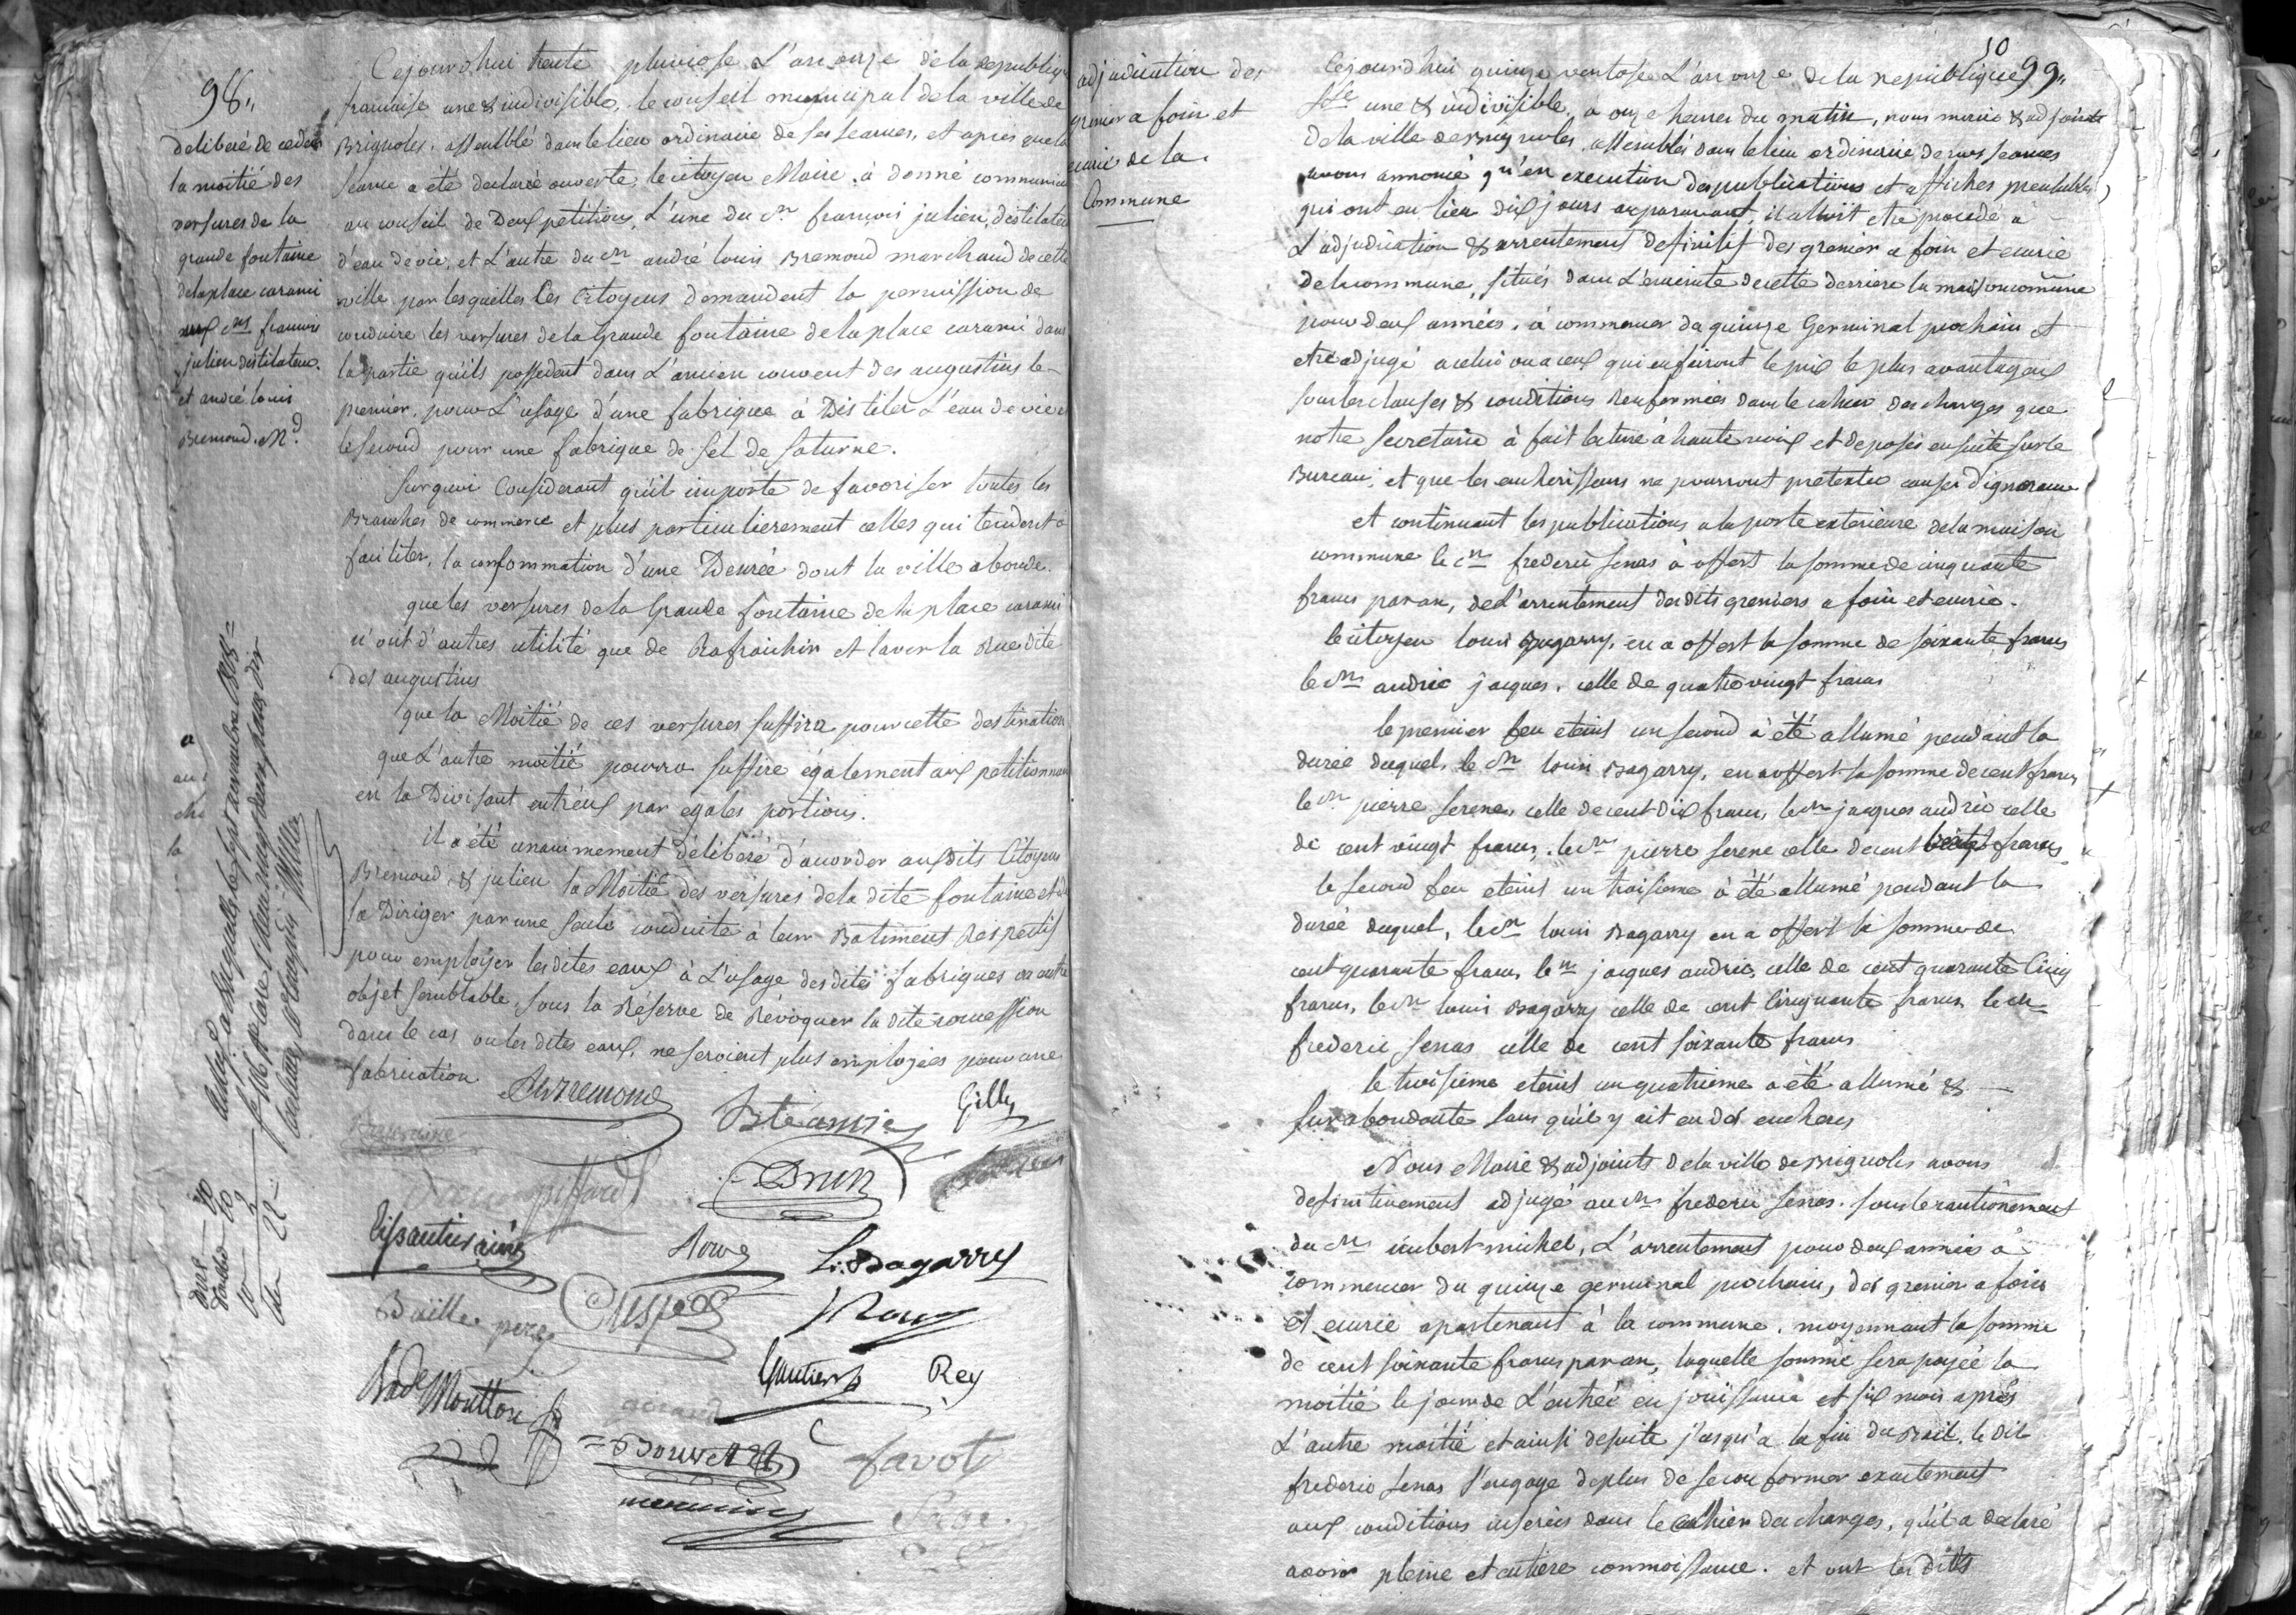 98"
delibéré de ceder
la moitié des
versures de la
grande fontaine
dela place carami
aux cns francois
julien distilateur
et andré louis
Bremond. Md
Cejourdhui trente pluviose L'an onze dela republique
francaise une & indivisible, le conseil municipal dela ville de
Brignoles. assemblé dans le lieu ordinaire de ses seances, et après que la
seance a été declarée ouverte, le citoyen Maire, à donné communica
au conseil de Deux petitions, L'une du cn francois julien, distilateur
d'eau de vie, et L'autre du cn andré louis Bremond marchand de cette
ville par lesquelles les Citoyens demandent la permission de
conduire les versures dela Grande fontaine dela place carami dans
la partie qu'ils possedent dans L'ancien couvent des augustins le-
premier, pour L'usage d'une fabrique à Distiler L'eau de vie et
le second pour une fabrique de sel de saturne.
Sur quoi Considerant qu'il importe de favoriser toutes les
Branches de commerce et plus particulierement celles qui tendent a
faciliter, la consommation d'une Denrée dont la ville abonde.
que les versures dela Grande fontaine de la place carami
n'ont d'autres utilité que de Rafraichir et laver la Rue dite
des augustins
que la Moitié de ces versures suffira pour cette destination
que L'autre moitié pourra suffire également aux petitionnaires
en la Divisant entr'eux par egales portions.
il a été unanimement délibéré d'accorder ausdits Citoyens
Bremond, & julien la Moitié des versures dela dite fontaine et de
la Diriger par une seule conduite à leur Batiment respectif
pour employer les dites eaux à L'usage des dites fabriques ou autre
objet semblable, sous la Réserve de Révoquer la dite concession
dans le cas ou les dites eaux, ne seroient plus employées pour une
fabrication
Bremond
Gilly
Brun
Lissautier ainé
Roux
L: Bagarry
Baille pere
Crisped
Roux
Gautier
Rey
Moutton
=Bouvet
favot
Sage
10
99"
adjudication des
grenier a foin et
ecurie de la
Commune
Cejourdhui quinze ventose L'an onze dela republique
fse une & indivisible, a onze heures du matin, nous maire & adjoints
dela ville de Brignoles, assemblés dans le lieu ordinaire de nos seances
avons annoncé qu'en execution des publications et affiches prealables
qui ont eu lieu dix jours auparavant, il alloit etre procedé a
L'adjudication & arrentement definitif des grenier a foin et ecurie
de la commune, situés dans L'enceinte de cette derriere la maison comune
pour deux années, à commencer du quinze Germinal prochain et
etre adjugé a celui ou a ceux qui en fairont le prix le plus avantageux
sous les clauses & conditions Renfermées dans le cahier des charges que
notre secretaire à fait lecture à haute voix et deposés ensuite sur le
Bureau, et que les encherisseurs ne pourront pretexter cause d'ignorance
et continuant les publications a la porte exterieure dela maison
commune le cn frederic senas à offert la somme de cinquante
francs par an, de L'arrentement des dits greniers a foin et ecurie.
le citoyen louis Bagarry, en a offert la somme de soixante francs
le cn andric jacques, celle de quatrevingt francs
le premier feu eteint un second à été allumé pendant la
durée duquel, le cn louis Bagarry, en a offert la somme de cent francs
le cn pierre serene, celle de cent dix francs, le cn jacques andric celle
de cent vingt francs, le cn pierre serene celle de cent francs
le second feu eteint un troisieme à été allumé pendant la
durée duquel, le cn louis Bagarry en a offert la somme de
cent quarante francs le cn jacques andric, celle de cent quarante Cinq
francs, le cn louis Bagarry celle de cent Cinquante francs le cn
frederic senas celle de cent soixante francs
le troisieme eteint un quatrieme a été allumé &
surabondante sans qu'il y ait eu des encheres
Nous Maire & adjoints dela ville de Brignoles avons
definitivement adjugé au cn frederic senas. sous le cautionement
du cn imbert michel, L'arrentement pour deux années à
commencer du quinze germinal prochain, des grenier a foin
et ecurie apartenant à la commune, moyennant la somme
de cent soixante francs par an, laquelle somme sera payée la
moitié le jour de L'entrée en jouissance et six mois après
L'autre moitié et ainsi desuite jusqu'à la fin du Bail. le dit
frederic senas s'engage deplus de se conformer exactement
aux conditions inserées dans le cahier des charges, qu'il a declaré
avoir pleine et entiere connoissance. et ont les dits